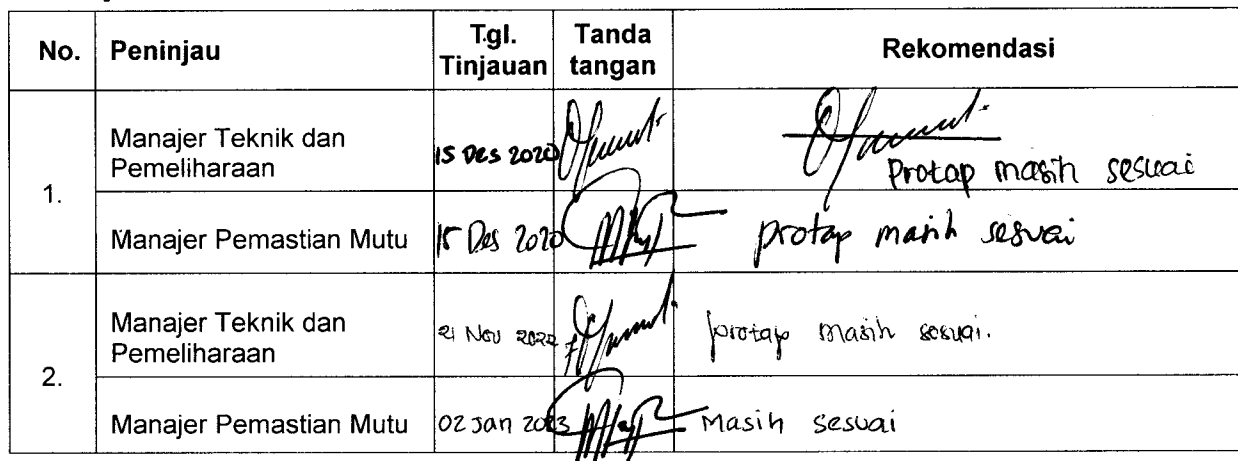 No. Peninjau Tgl. Tinjauan Tanda tangan Rekomendasi
1. Manajer Teknik dan Pemeliharaan 15 Des 2020 Protap masih sesuai
Manajer Pemastian Mutu 15 Des 2020 protap masih sesuai
2. Manajer Teknik dan Pemeliharaan 21 Nov 2022 protap masih sesuai.
Manajer Pemastian Mutu 02 Jan 2023 Masih sesuai